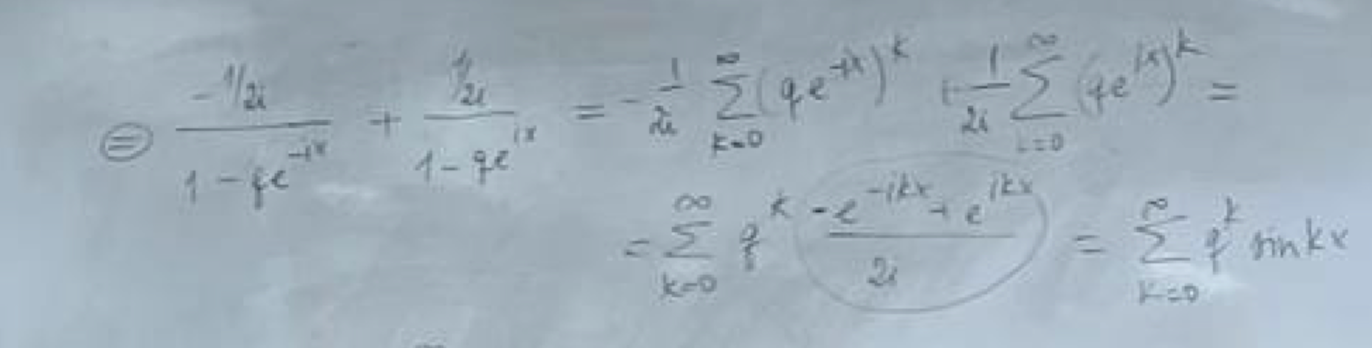 ⊜ \frac{-1/2i}{1 - qe^{-ix}} + \frac{1/2i}{1 - qe^{ix}} = -\frac{1}{2i} \sum_{k=0}^{\infty} (qe^{-ix})^k + \frac{1}{2i} \sum_{k=0}^{\infty} (qe^{ix})^k =
= \sum_{k=0}^{\infty} q^k \frac{-e^{-ikx} + e^{ikx}}{2i} = \sum_{k=0}^{\infty} q^k sin kx